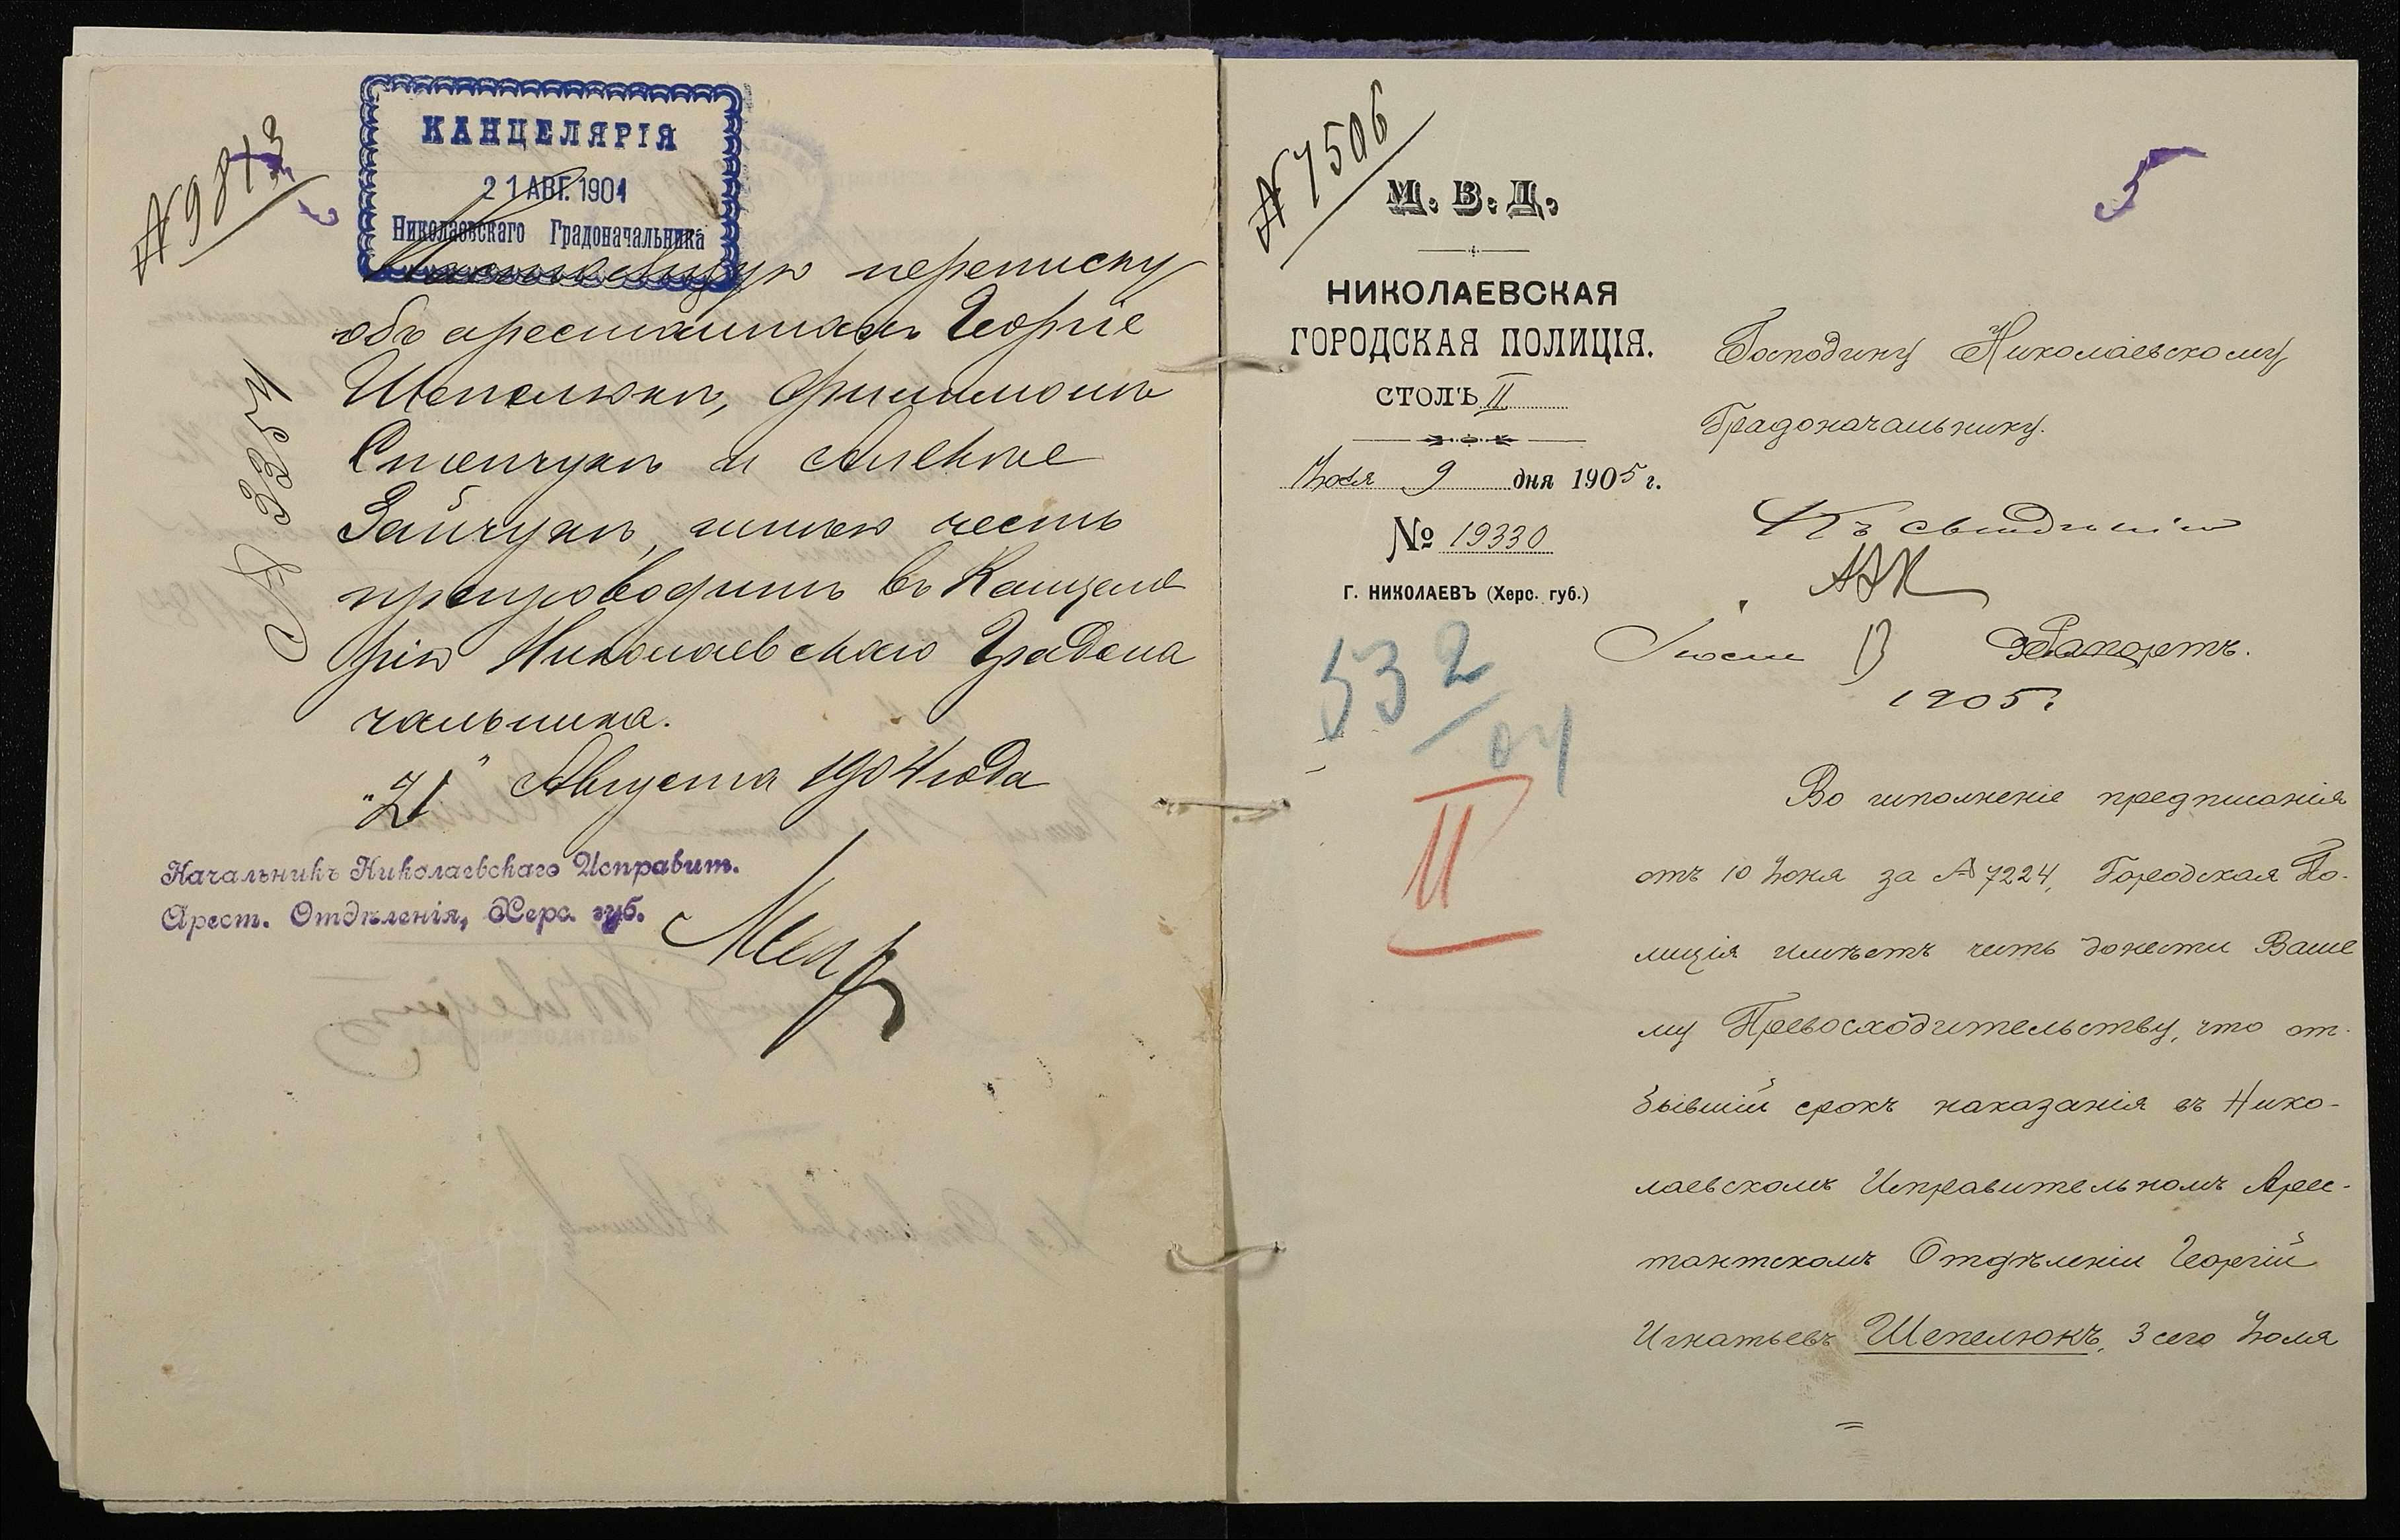 № 9873
КАНЦЕЛЯРІЯ
21 АВГ. 1904
Николаевскаго Градоначальника
переписку
объ арестантахъ Георгіе
Шепелюкъ, Филимонъ
Степчукъ и Алексѣе
Зайчукъ, имѣю честь
препроводить въ Канцеля
рію Николаевскаго Градона
чальника.
"21" Августа 1904 года
№ 3354
Начальникъ Николаевскаго Исправит.
Арест. Отдѣленія, Херс. губ.
№ 7506
5
М. В. Д.
НИКОЛАЕВСКАЯ
ГОРОДСКАЯ ПОЛИЦІЯ.
СТОЛЪ II
Іюля 9 дня 1905 г.
№ 19330
Г. НИКОЛАЕВЪ (Херс. губ.)
532/04
II
Господину Николаевскому
Градоначальнику.
Къ свѣдѣнію
Іюля 13
1905 г.
Рапортъ.
Во исполненіе предписанія
отъ 10 Іюня за № 7224, Городская По-
лиція имѣетъ честь донести Ваше
му Превосходительству, что от-
бывшій срокъ наказанія въ Нико-
лаевскомъ Исправительномъ Арес-
тантскомъ Отдѣленіи Георгій
Игнатьевъ Шепелюкъ, 3 сего Іюля